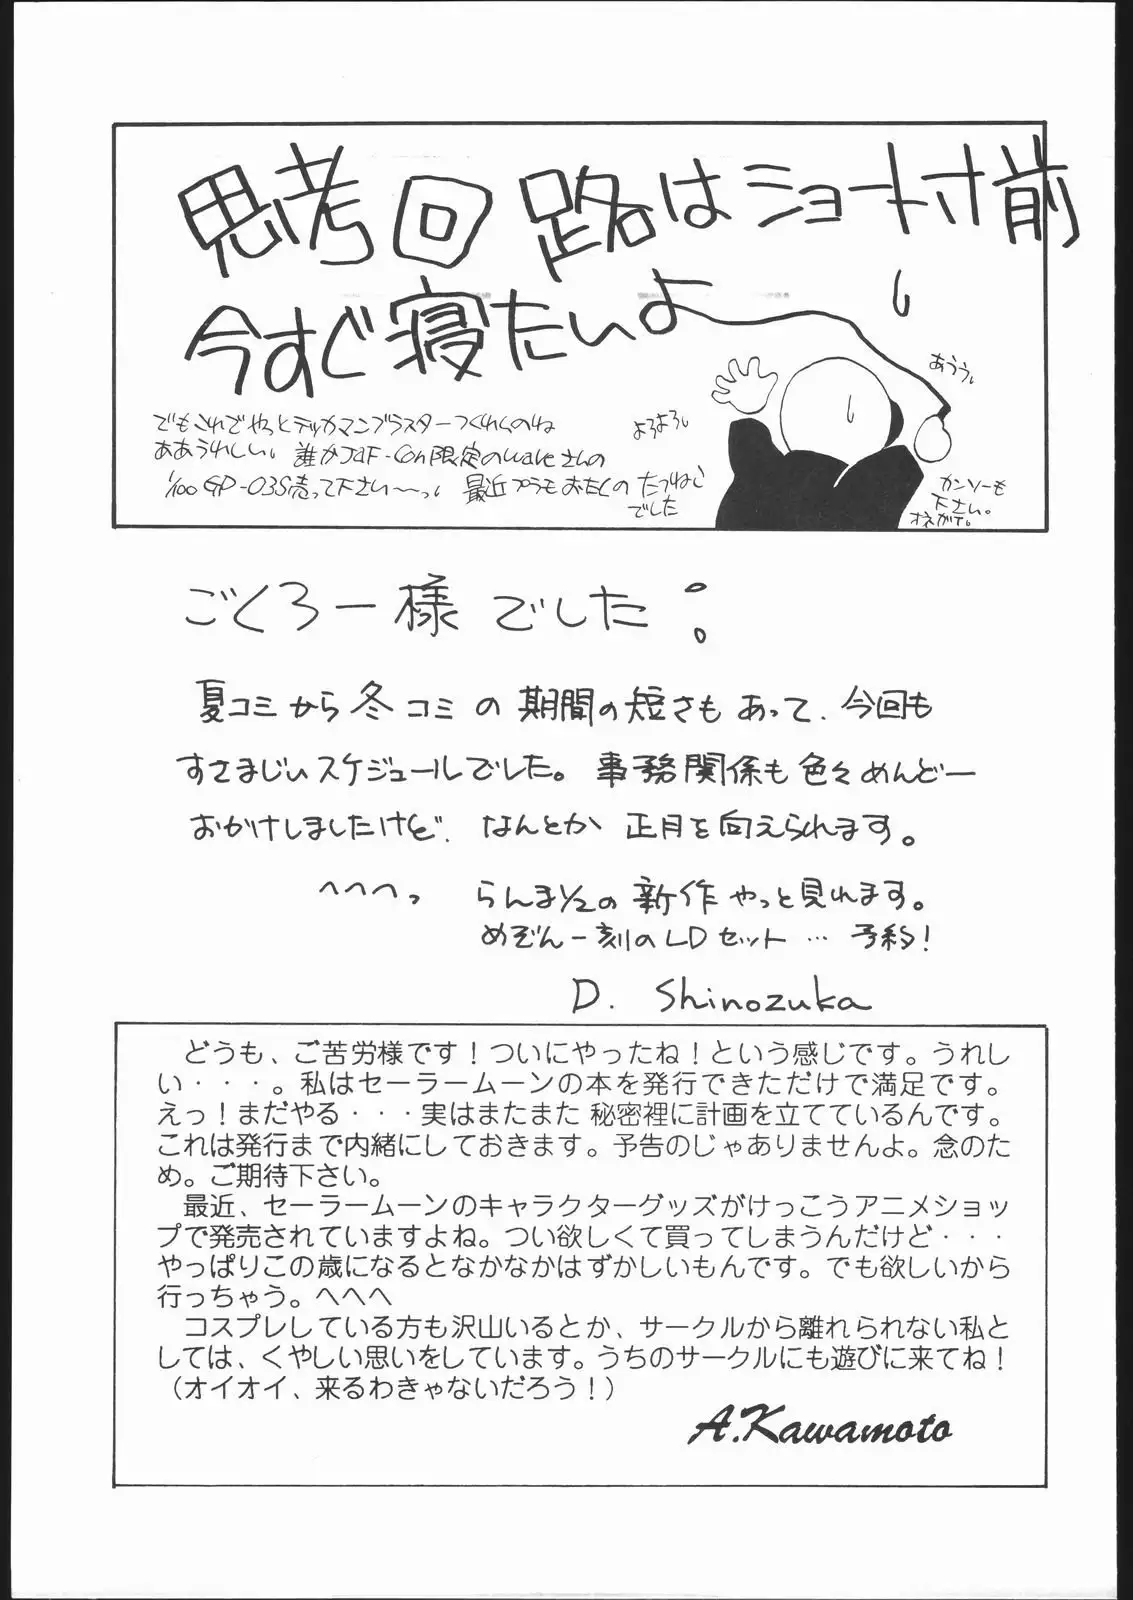 思考回路はショート寸前
今すぐ寝たいよ
あうう。
よろよろ。
でもこれでやっとテッカマンブラスターつくれるのね
ああうれしい。誰かJAF-Con限定のwaveさんの
1/100 GP-03S売って下さい〜っ。最近プラモおたくの たつねこ
でした
カンソーも
下さい。
オネガイ。
ごくろー様でした。
夏コミから冬コミの期間の短さもあって、今回も
すさまじいスケジュールでした。事務関係も色々めんどー
おかけしましたけど、なんとか正月を向えられます。
へへへっ らんま1/2の新作やっと見れます。
めぞん一刻のLDセット…予約!
D. Shinozuka
どうも、ご苦労様です！ついにやったね！という感じです。うれし
い・・・。私はセーラームーンの本を発行できただけで満足です。
えっ！まだやる・・・実はまたまた秘密裡に計画を立てているんです。
これは発行まで内緒にしておきます。予告のじゃありませんよ。念のた
め。ご期待下さい。
最近、セーラームーンのキャラクターグッズがけっこうアニメショッ
プで発売されていますよね。つい欲しくて買ってしまうんだけど・・・
やっぱりこの歳になるとなかなかはずかしいもんです。でも欲しいから
行っちゃう。へへへ
コスプレしている方も沢山いるとか、サークルから離れられない私と
しては、くやしい思いをしています。うちのサークルにも遊びに来てね！
（オイオイ、来るわきゃないだろう！）
A.Kawamoto